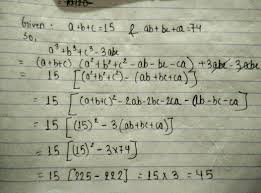 Given : a+b+c = 15 & ab+bc+ca = 74
So,
a³+b³+c³-3abc
= (a+b+c) (a²+b²+c²-ab-bc-ca) + 3abc-3abc
= 15 [(a²+b²+c²) - (ab+bc+ca)]
= 15 [(a+b+c)² - 2ab-2bc-2ca - ab-bc-ca]
= 15 [(15)² - 3(ab+bc+ca)]
= 15 [(15)² - 3×74]
= 15 [225 - 222] = 15 × 3 = 45